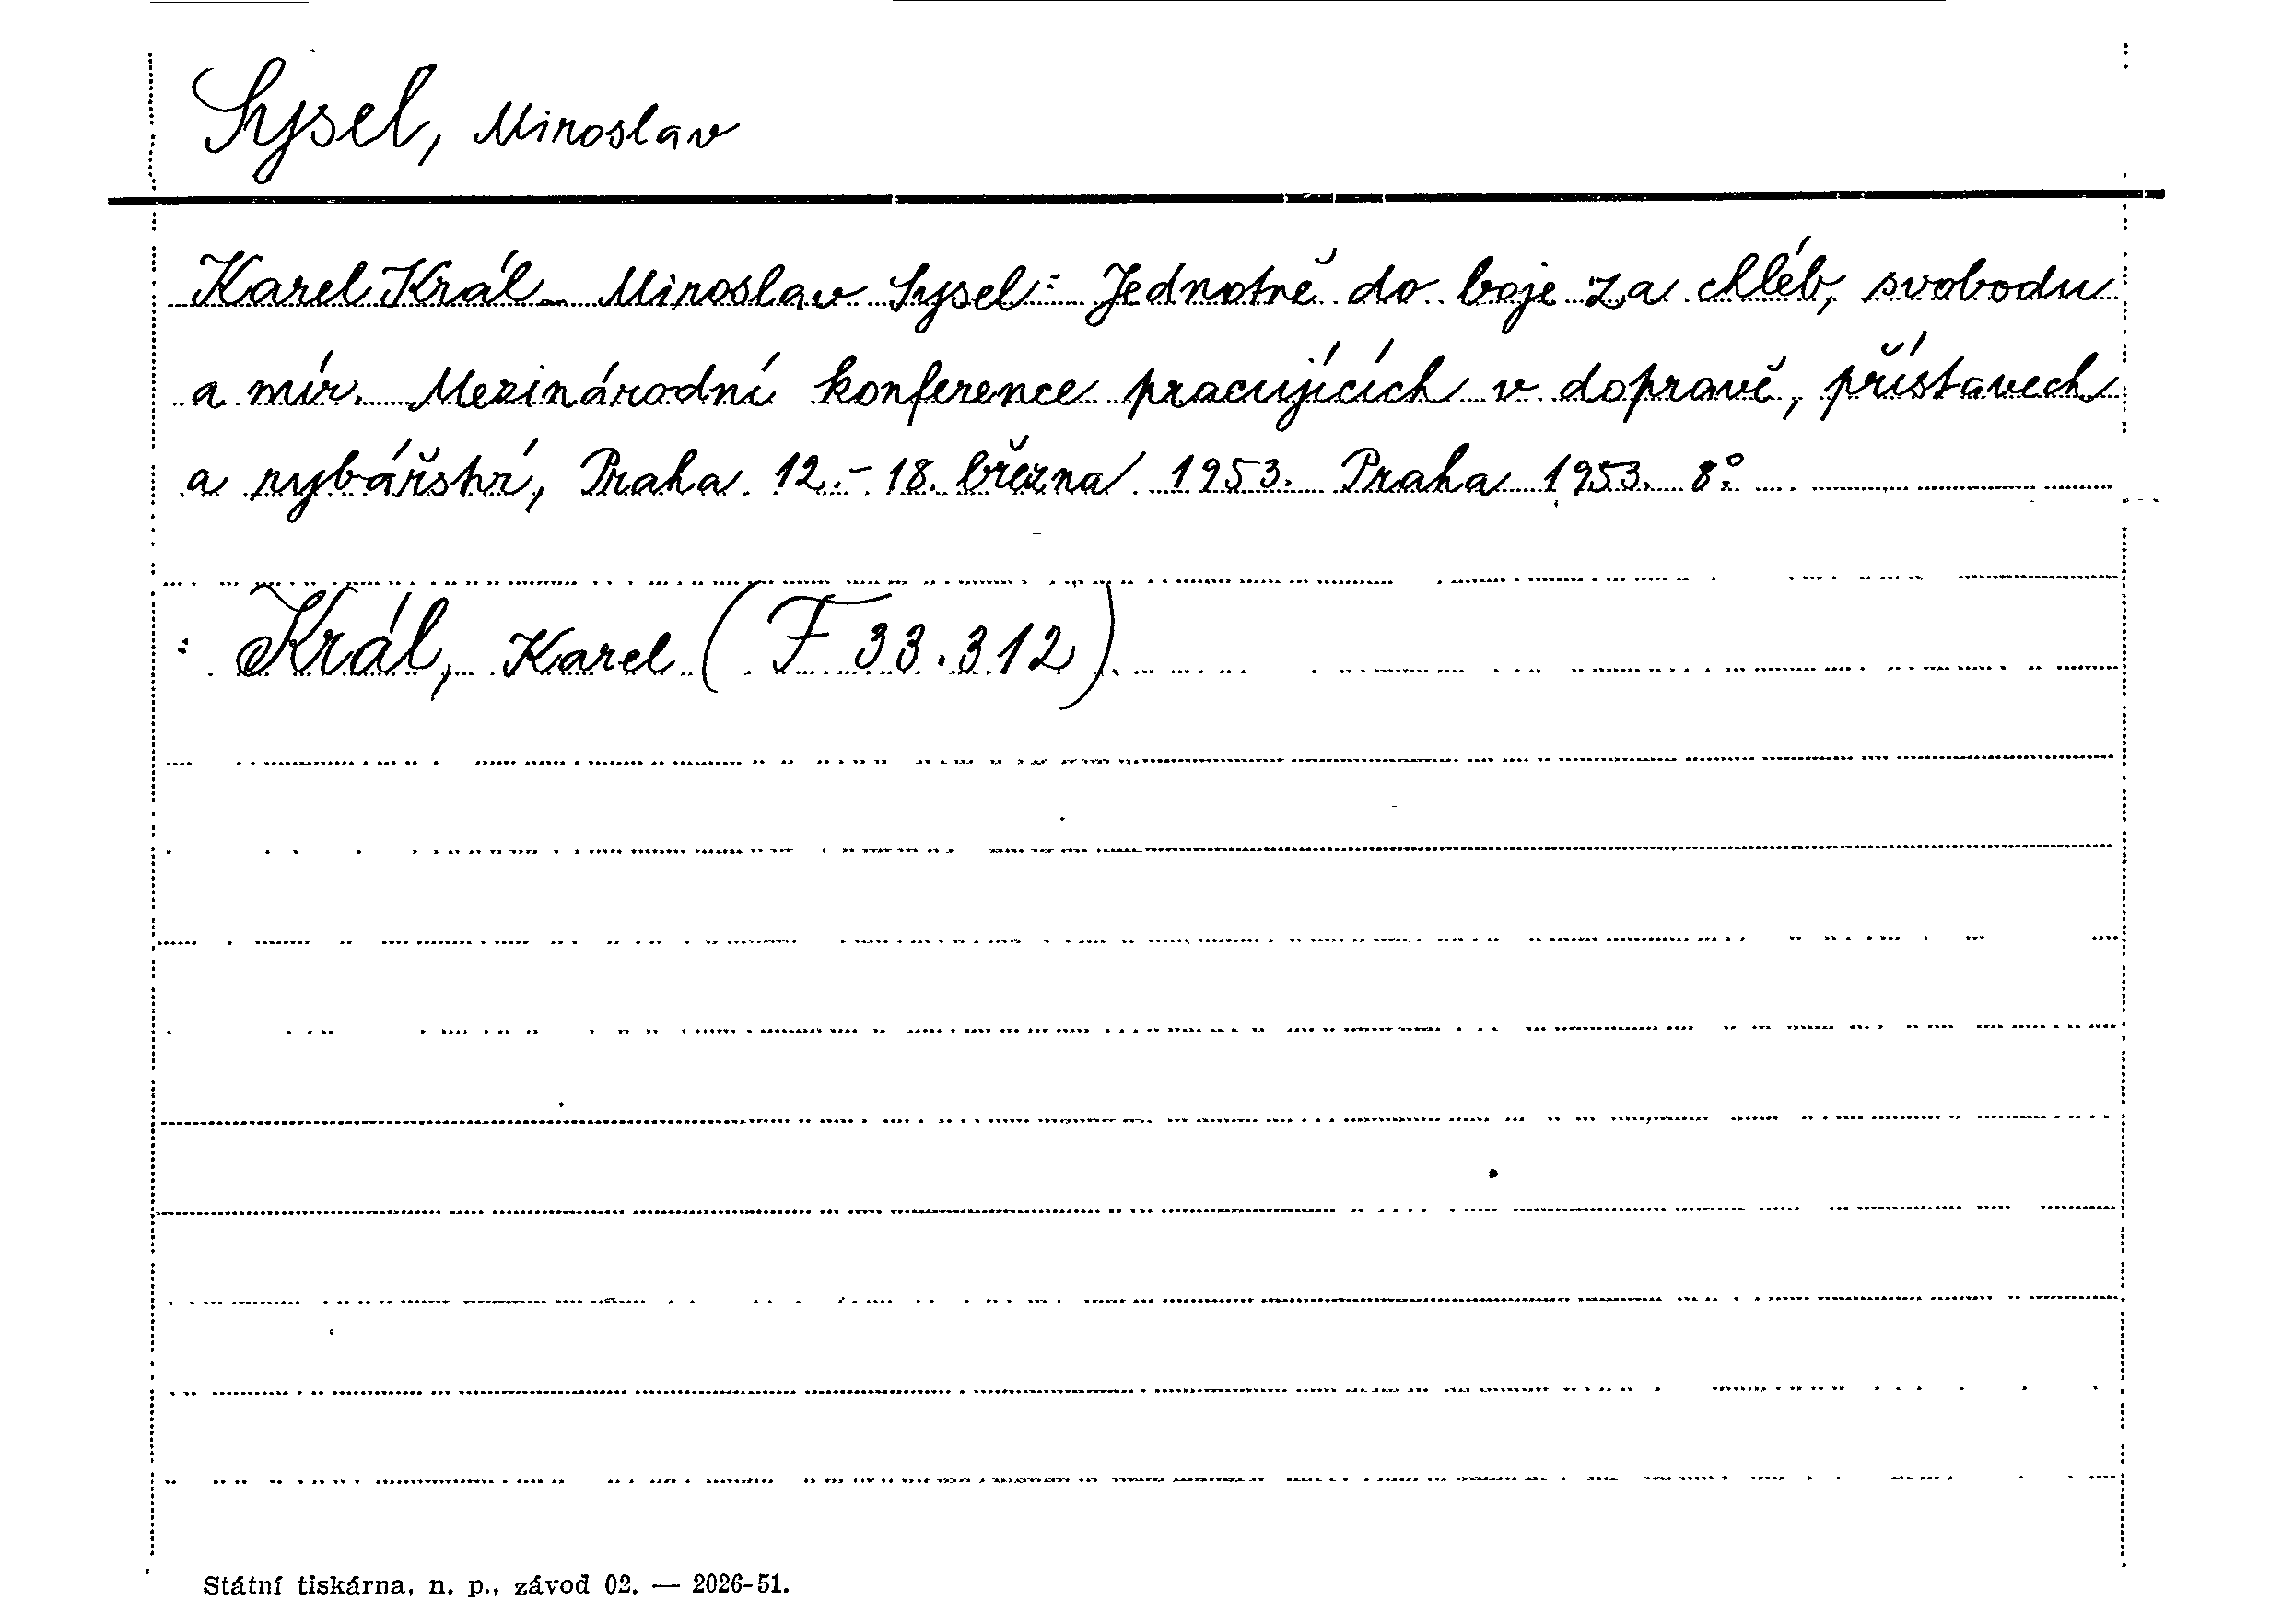 Sysel, Miroslav
Karel Král - Miroslav Sysel: Jednotně do boje za chléb, svobodu
a mír. Mezinárodní konference pracujících v dopravě, přístavech
a rybářství, Praha 12.-18. března 1953. Praha 1953. 8°.
: Král, Karel (F 33.312).
Státní tiskárna, n. p., závod 02. — 2026-51.